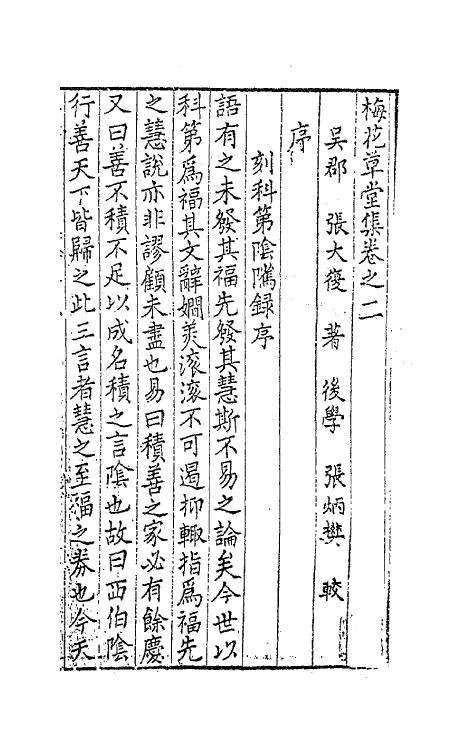 梅花草堂集卷之二
吳郡 張大復 著 後學 張炳樊 較
序
刻科第陰隲錄序
語有之未發其福先發其慧斯不易之論矣今世以
科第爲福其文辭嫺美滚滚不可遏抑輙指爲福先
之慧說亦非謬顧未盡也易曰積善之家必有餘慶
又曰善不積不足以成名積之言陰也故曰西伯陰
行善天下皆歸之此三言者慧之至福之券也今天